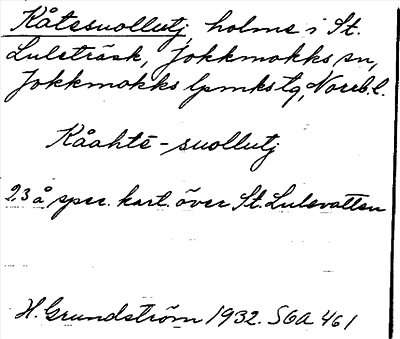 Kåtesuollutj, holme i St.
Luleträsk, Jokkmokks sn,
Jokkmokks lpmkstg, Norrb. l.
Kåahtē-suollutj
23 å spec. kart. över St. Lulevatten
H. Grundström 1932. SOA 461